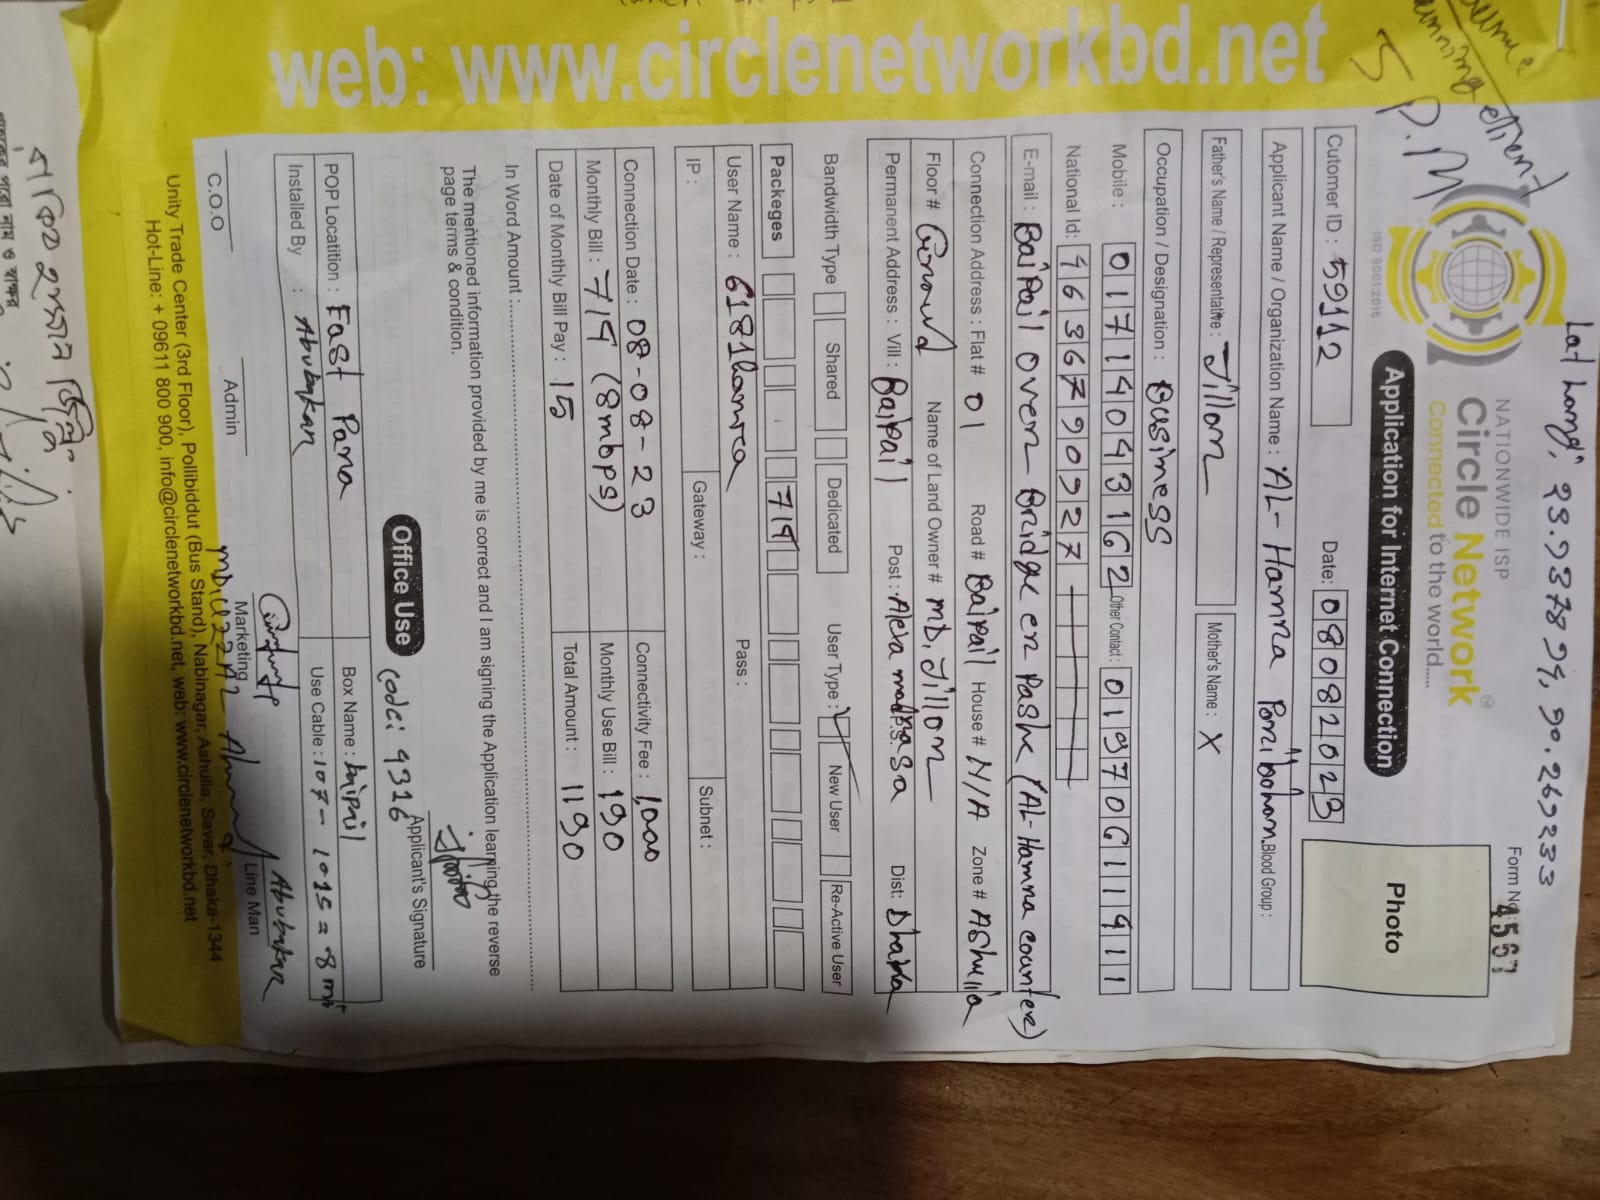 web: www.circlenetworkbd.net
5 P.M
Lat Long: 23.937894, 90.269233
NATIONWIDE ISP
Circle Network
Connected to the world.....
ISO 9001:2015
Form No: 4567
Application for Internet Connection
Photo
Cutomer ID : 59112 Date: 08082023
Applicant Name / Organization Name : AL-Hamra Paribohan Blood Group :
Father's Name / Representative : Jillon Mother's Name : X
Occupation / Designation : Business
Mobile : 01714043162 Other Contact : 01970611911
National Id: 4636790927
E-mail : Baipail over Bridge er Pashe (AL-Hamra counter)
Connection Address : Flat # 01 Road # Baipail House # N/A Zone # Ashulia
Floor # Ground Name of Land Owner # MD. Jillon
Permanent Address : Vill : Baipail Post : Alexa madrasa P.S: Dist: Dhaka
Bandwidth Type Shared Dedicated User Type : New User Re-Active User
Packeges 714
User Name : 6181hamra Pass :
IP : Gateway : Subnet :
Connection Date : 08-08-23 Connectivity Fee : 1,000
Monthly Bill : 714 (8mbps) Monthly Use Bill : 190
Date of Monthly Bill Pay : 15 Total Amount : 1190
In Word Amount :
The mentioned information provided by me is correct and I am signing the Application learning the reverse
page terms & condition.
Applicant's Signature
Office Use Code: 9316
POP Locatition : Fast Para Box Name : baipail
Installed By : Abubakar Use Cable : 107-1015=8m
Abubakar
C.O.O Admin Marketing Line Man
Unity Trade Center (3rd Floor), Pollibiddut (Bus Stand), Nabinagar, Ashulia, Savar, Dhaka-1344
Hot-Line: + 09611 800 900, info@circlenetworkbd.net, web: www.circlenetworkbd.net